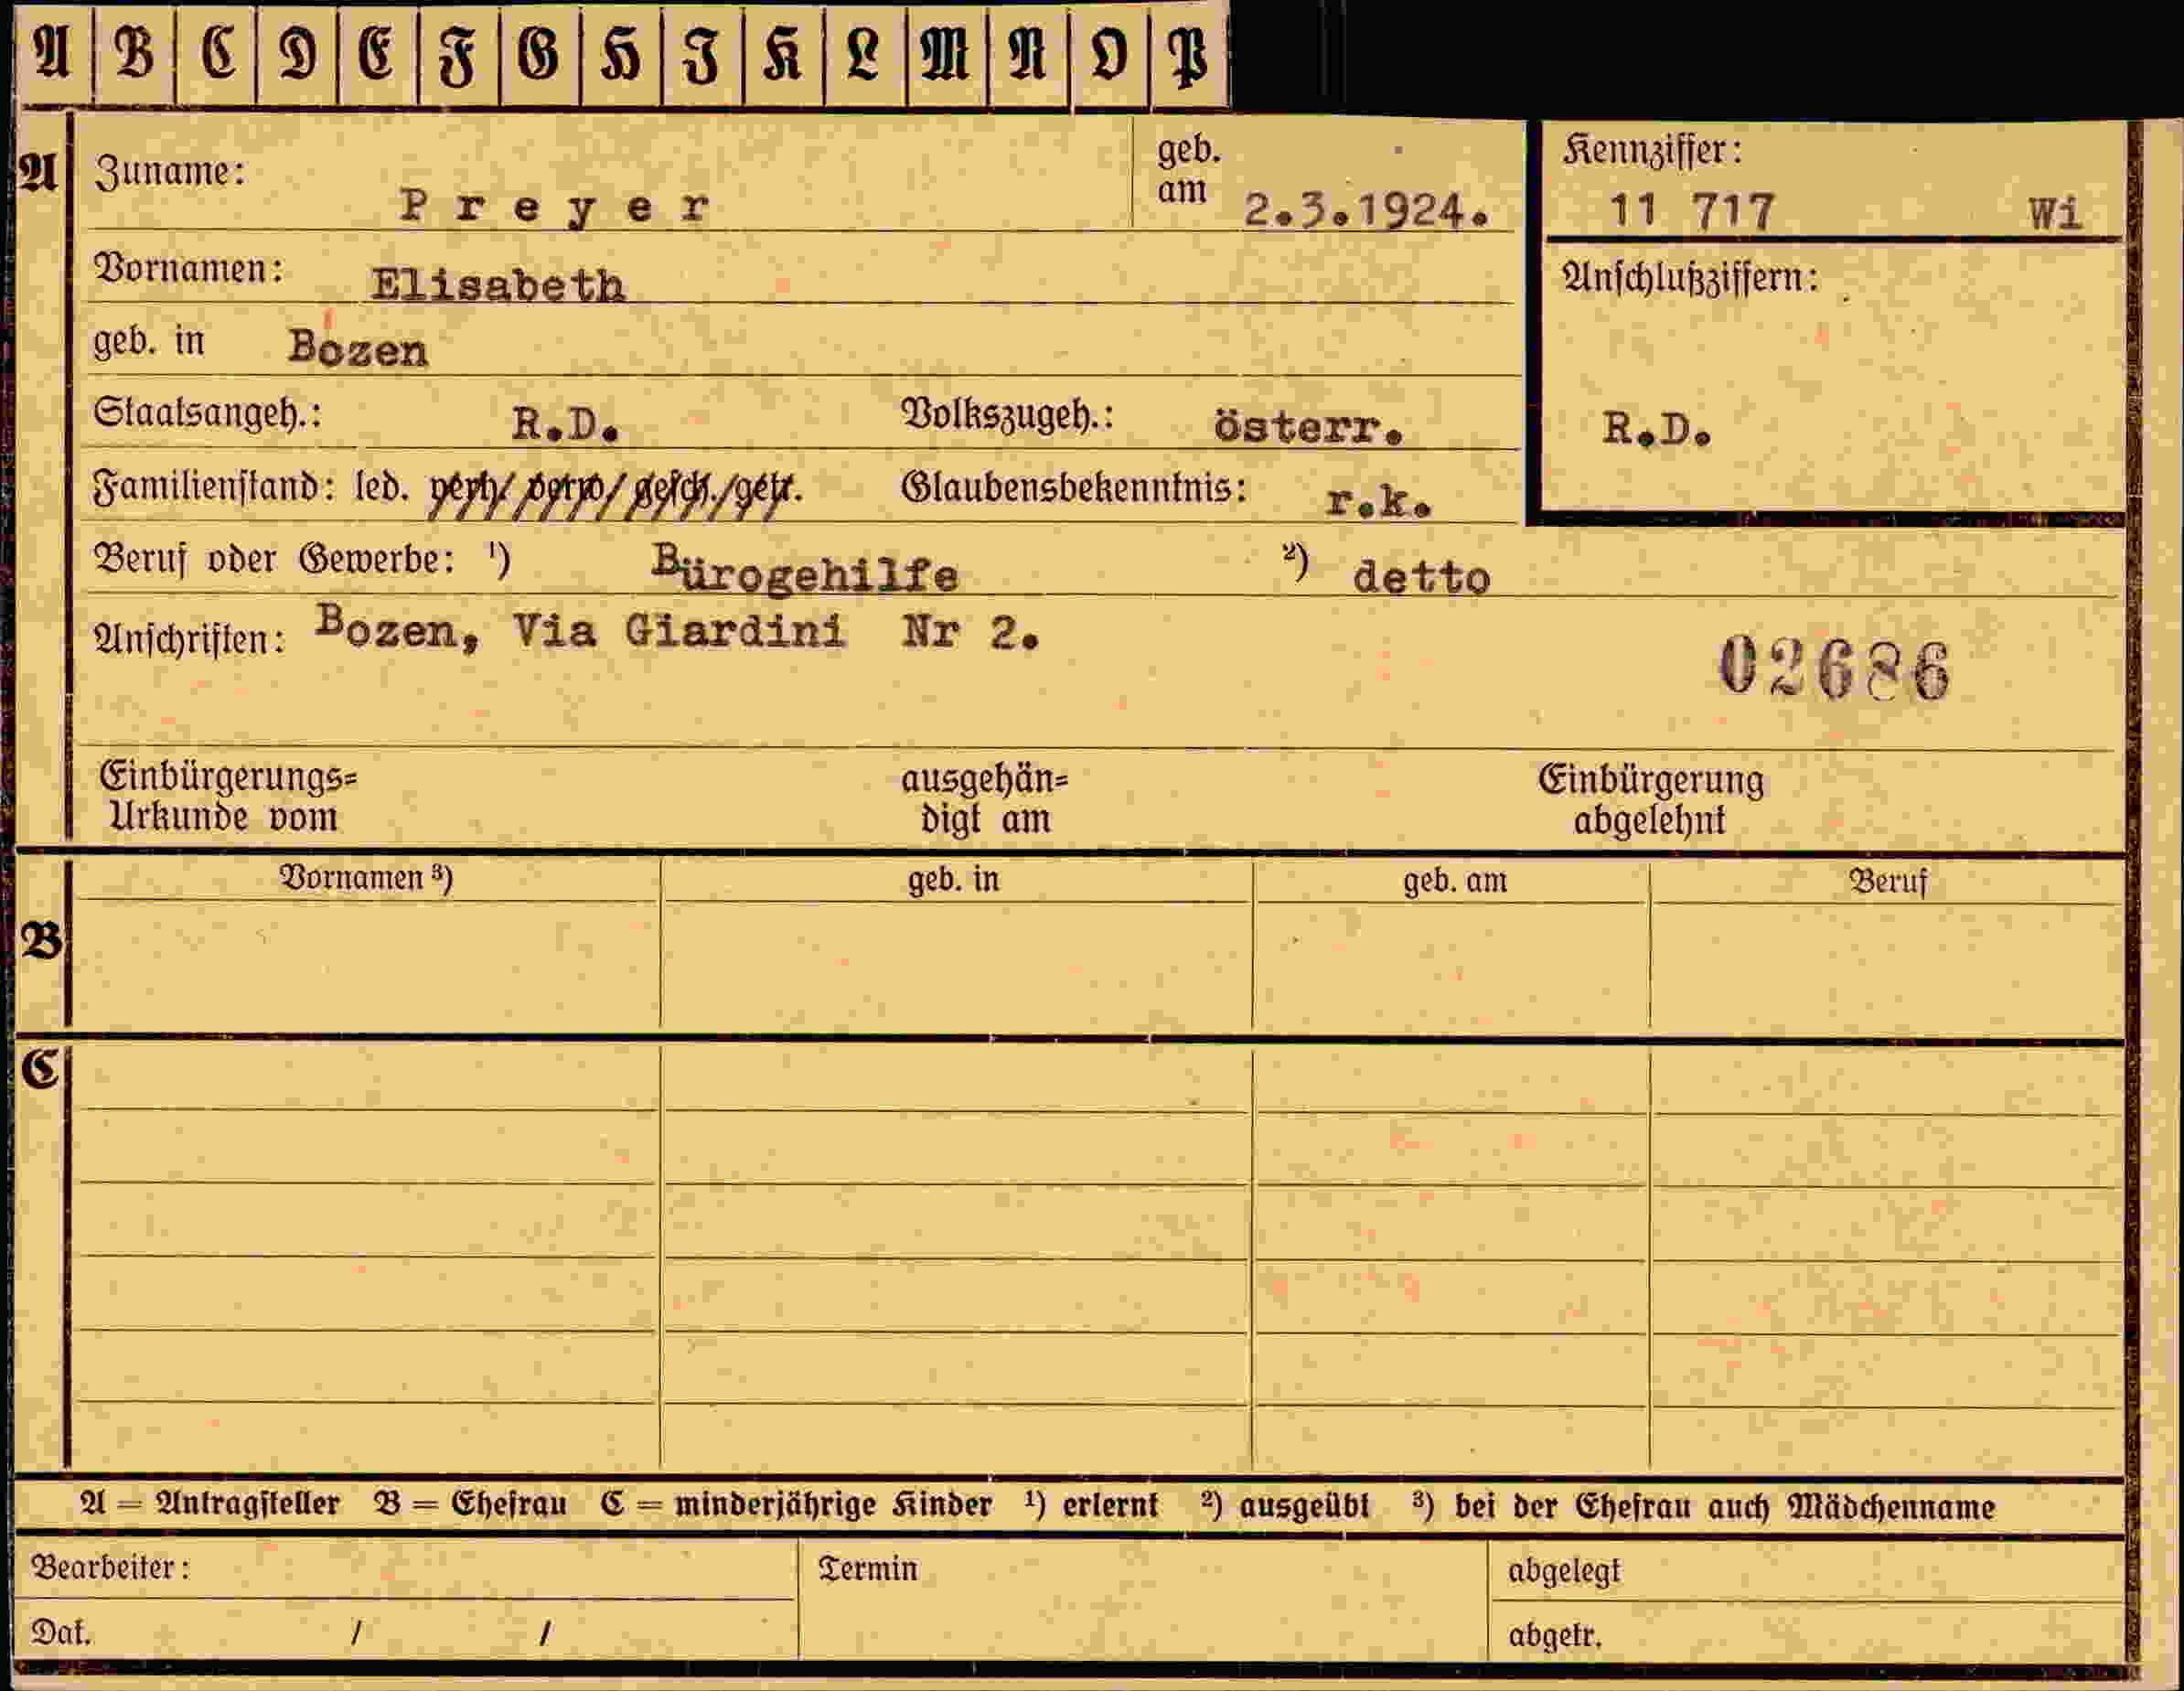 A B C D E F G H I K L M N O P
A Zuname: Preyer geb. am 2.3.1924. Kennziffer: 11 717 Wi
Vornamen: Elisabeth Anschlußziffern:
geb. in Bozen
Staatsangeh.: R.D. Volkszugeh.: österr. R.D.
Familienstand: led. verh/ verw/ gesch./getr. Glaubensbekenntnis: r.k.
Beruf oder Gewerbe: ¹) Bürogehilfe ²) detto
Anschriften: Bozen, Via Giardini Nr 2.
02686
Einbürgerungs= ausgehän= Einbürgerung
Urkunde vom digt am abgelehnt
Vornamen ³) geb. in geb. am Beruf
B
C
A = Antragsteller B = Ehefrau C = minderjährige Kinder ¹) erlernt ²) ausgeübt ³) bei der Ehefrau auch Mädchenname
Bearbeiter: Termin abgelegt
Dat. / / abgetr.